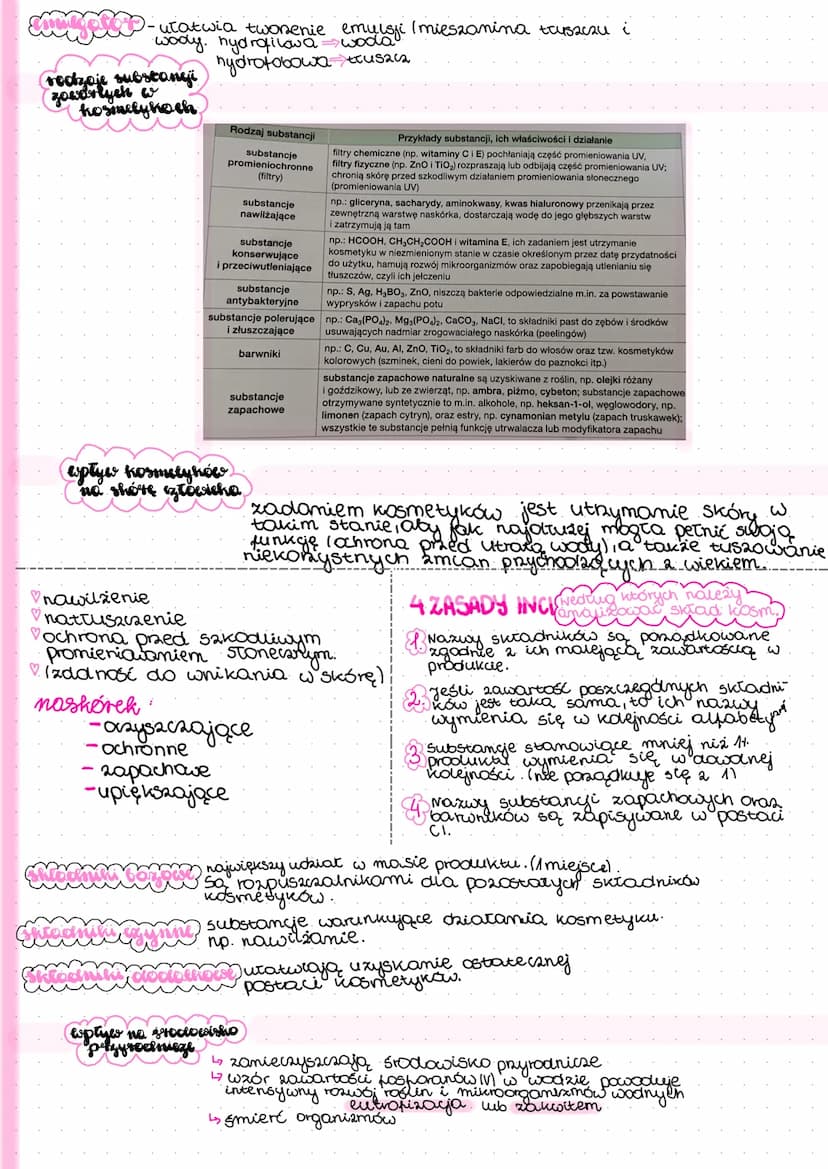 emulgator - ułatwia tworzenie emulsji (mieszanina tłuszczu i
wody. hydrofilowa ⇒ woda
hydrofobowa ⇒ tłuszcz
rodzaje substancji
zawartych w
kosmetykach
Rodzaj substancji
Przykłady substancji, ich właściwości i działanie
substancje
promieniochronne
(filtry)
filtry chemiczne (np. witaminy C i E) pochłaniają część promieniowania UV,
filtry fizyczne (np. ZnO i TiO₂) rozpraszają lub odbijają część promieniowania UV;
chronią skórę przed szkodliwym działaniem promieniowania słonecznego
(promieniowania UV)
substancje
nawilżające
np.: gliceryna, sacharydy, aminokwasy, kwas hialuronowy przenikają przez
zewnętrzną warstwę naskórka, dostarczają wodę do jego głębszych warstw
i zatrzymują ją tam
substancje
konserwujące
i przeciwutleniające
np.: HCOOH, CH₃CH₂COOH i witamina E, ich zadaniem jest utrzymanie
kosmetyku w niezmienionym stanie w czasie określonym przez datę przydatności
do użytku, hamują rozwój mikroorganizmów oraz zapobiegają utlenianiu się
tłuszczów, czyli ich jełczeniu
substancje
antybakteryjne
np.: S, Ag, H₃BO₃, ZnO, niszczą bakterie odpowiedzialne m.in. za powstawanie
wyprysków i zapachu potu
substancje polerujące
i złuszczające
np.: Ca₃(PO₄)₂, Mg₃(PO₄)₂, CaCO₃, NaCl, to składniki past do zębów i środków
usuwających nadmiar zrogowaciałego naskórka (peelingów)
barwniki
np.: C, Cu, Au, Al, ZnO, TiO₂, to składniki farb do włosów oraz tzw. kosmetyków
kolorowych (szminek, cieni do powiek, lakierów do paznokci itp.)
substancje
zapachowe
substancje zapachowe naturalne są uzyskiwane z roślin, np. olejki różany
i goździkowy, lub ze zwierząt, np. ambra, piżmo, cybeton; substancje zapachowe
otrzymywane syntetycznie to m.in. alkohole, np. heksan-1-ol, węglowodory, np.
limonen (zapach cytryn), oraz estry, np. cynamonian metylu (zapach truskawek);
wszystkie te substancje pełnią funkcję utrwalacza lub modyfikatora zapachu
wpływ kosmetyków
na skórę człowieka
zadaniem kosmetyków jest utrzymanie skóry w
takim stanie, aby jak najdłużej mogła pełnić swoją
funkcję (ochrona przed utratą wody), a także tuszowanie
niekorzystnych zmian przychodzących z wiekiem.
♡ nawilżenie
♡ natłuszczenie
♡ ochrona przed szkodliwym
promieniowaniem słonecznym.
♡ (zdolność do wnikania w skórę)
naskórek:
- oczyszczające
- ochronne
- zapachowe
- upiększające
4 ZASADY INCI (według których należy
analizować skład kosm.)
1. Nazwy składników są porządkowane
zgodnie z ich malejącą zawartością w
produkcie.
2. Jeśli zawartość poszczególnych składni-
ków jest taka sama, to ich nazwy
wymienia się w kolejności alfabetyᶜᶻⁿᵉʲ
3. Substancje stanowiące mniej niż 1%
produktu wymienia się w dowolnej
kolejności. (nie porządkuje się z 1)
4. Nazwy substancji zapachowych oraz
barwników są zapisywane w postaci
CI.
składniki bazowe największy udział w masie produktu. (1 miejsce).
Są rozpuszczalnikami dla pozostałych składników
kosmetyków.
składniki czynne substancje warunkujące działania kosmetyku.
np. nawilżanie.
składniki dodatkowe ułatwiają uzyskanie ostatecznej
postaci kosmetyków.
wpływ na środowisko
przyrodnicze
↳ zanieczyszczają środowisko przyrodnicze
↳ wzór zawartości fosforanów(V) w wodzie powoduje
intensywny rozwój roślin i mikroorganizmów wodnych
eutrofizacja lub zakwitem
↳ śmierć organizmów